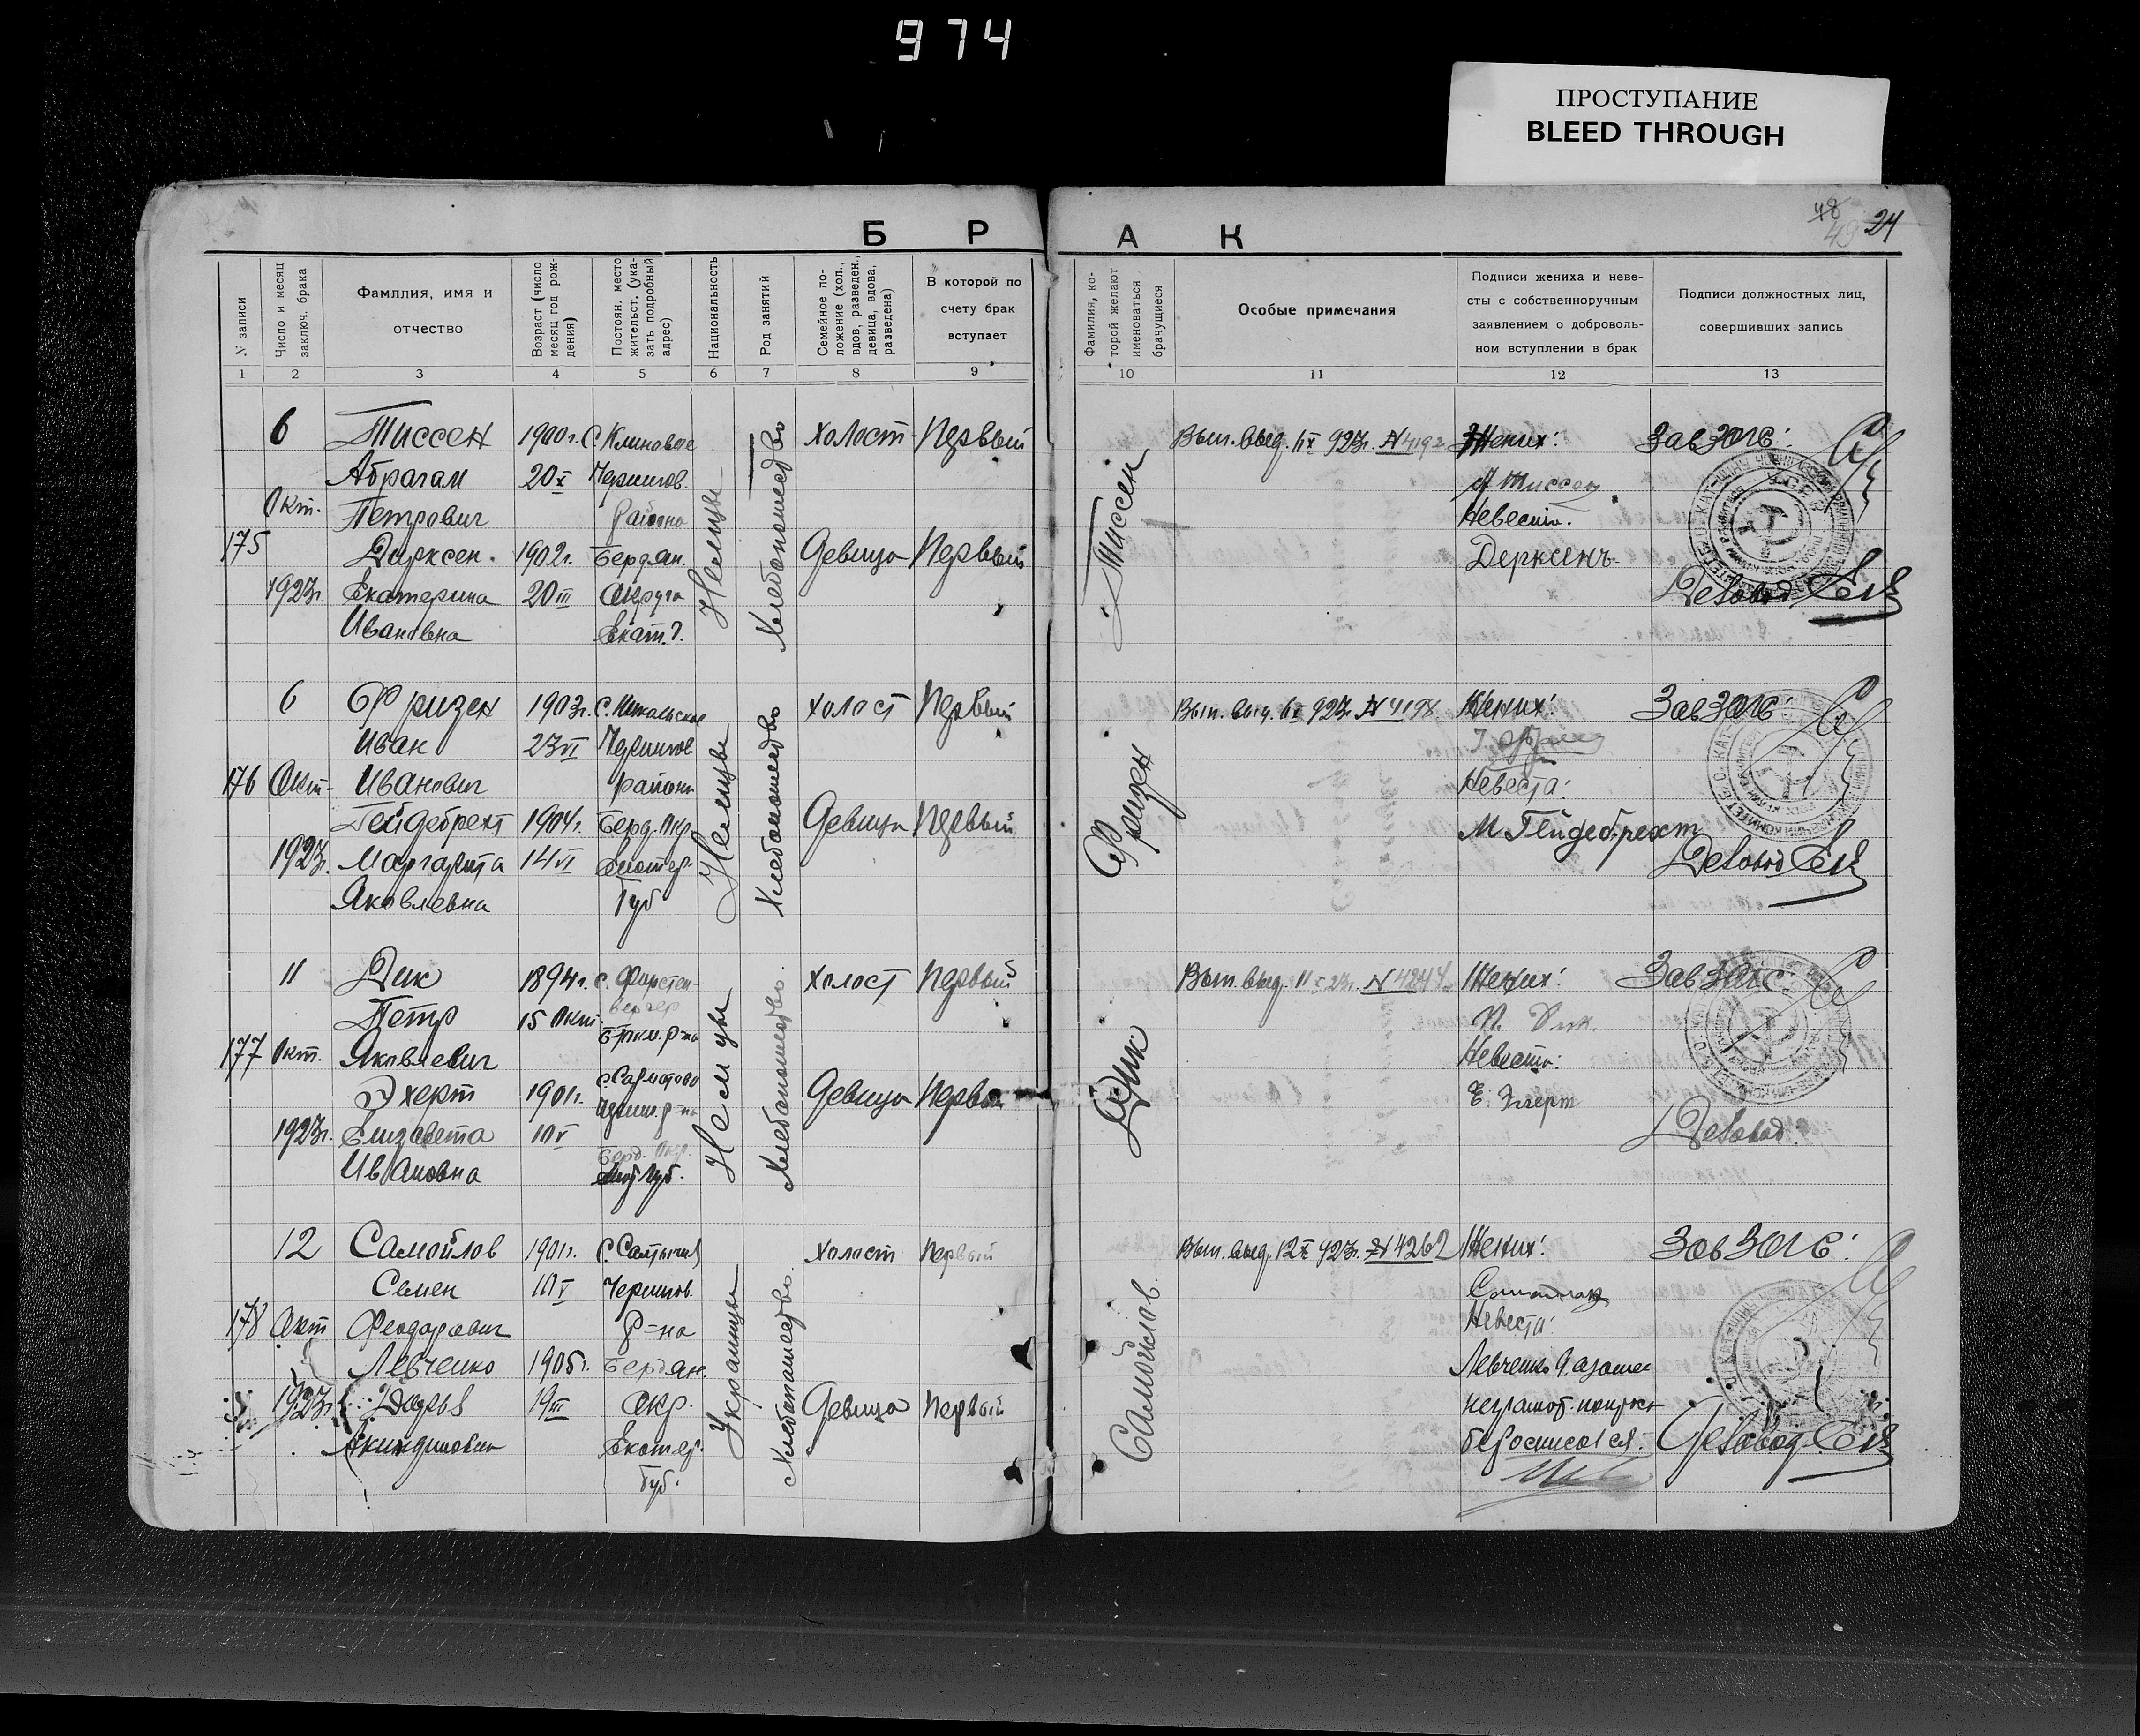 974
ПРОСТУПАНИЕ
BLEED THROUGH
48
49 24
Б Р А К
№ записи
Число и месяц заключ. брака
Фамлия, имя и отчество
Возраст (число месяц год рождения)
Постоян. место жительст. (указать подробный адрес)
Национальность
Род занятий
Семейное положение (хол., вдов, разведен., девица, вдова, разведена)
В которой по счету брак вступает
Фамилия, которой желают именоваться брачущиеся
Особые примечания
Подписи жениха и невесты с собственноручным заявлением о добровольном вступлении в брак
Подписи должностных лиц, совершивших запись
1 2 3 4 5 6 7 8 9 10 11 12 13
6 Тиссен 1900г. С. Клиновое холост Первый Вып. выд. 6 X 923г. N 4192 Жених: Зав Загс:
Абрагам 20 X Чернигов. Тиссен
Окт. Петрович Района Невеста.
175 Дирксен. 1902г. Бердян. Немцы Хлебопашество Девица Первый Тиссен Дерксенъ
1923г. Екатерина 20 III Округа Деловод
Ивановна Екат. Г.
6 Фризен 1903г. С. Никольское холост Первый Вып. выд. 6 X 923г. N 4198 Жених:
Зав Загс:
Иван 23 VI Чернигов
176 Окт. Иванович района Невеста:
Гейдебрехт 1904г. Берд. Окр. Немцы Хлебопашество Девица Первый Фризен М Гейдебрехт
1923г. Маргарита 14 VI Екатер. Деловод
Яковлевна Губ
11 Дик 1894г. С. Фюрстен- холост Первый Вып. выд. 11 X 23г. N 4244 Жених: Зав Загс:
Петр 15 Окт. вердер П. Дик.
177 Окт. Яковлевич р-на Невеста:
Эхерт 1901г. Немцы Хлебопашество Девица Первый Дик Е. Эхерт
1923г. Елизавета 10 V Берд. Окр. Деловод
Ивановна Губ.
12 Самойлов 1901г. С. Салтычия холост Первый Вып. выд. 12 X 923г. N 4262 Жених: Зав Загс:
Семен 10 V Чернигов.
178 Окт Феодорович Р-на Невеста:
Левченко 1905г. Бердян. Украинцы Хлебопашество Самойлов. Левченко
1923г. Дарья 19 III Окр. Девица Первый неграмот.
Акиндиновна Екатер. Деловод
Губ.